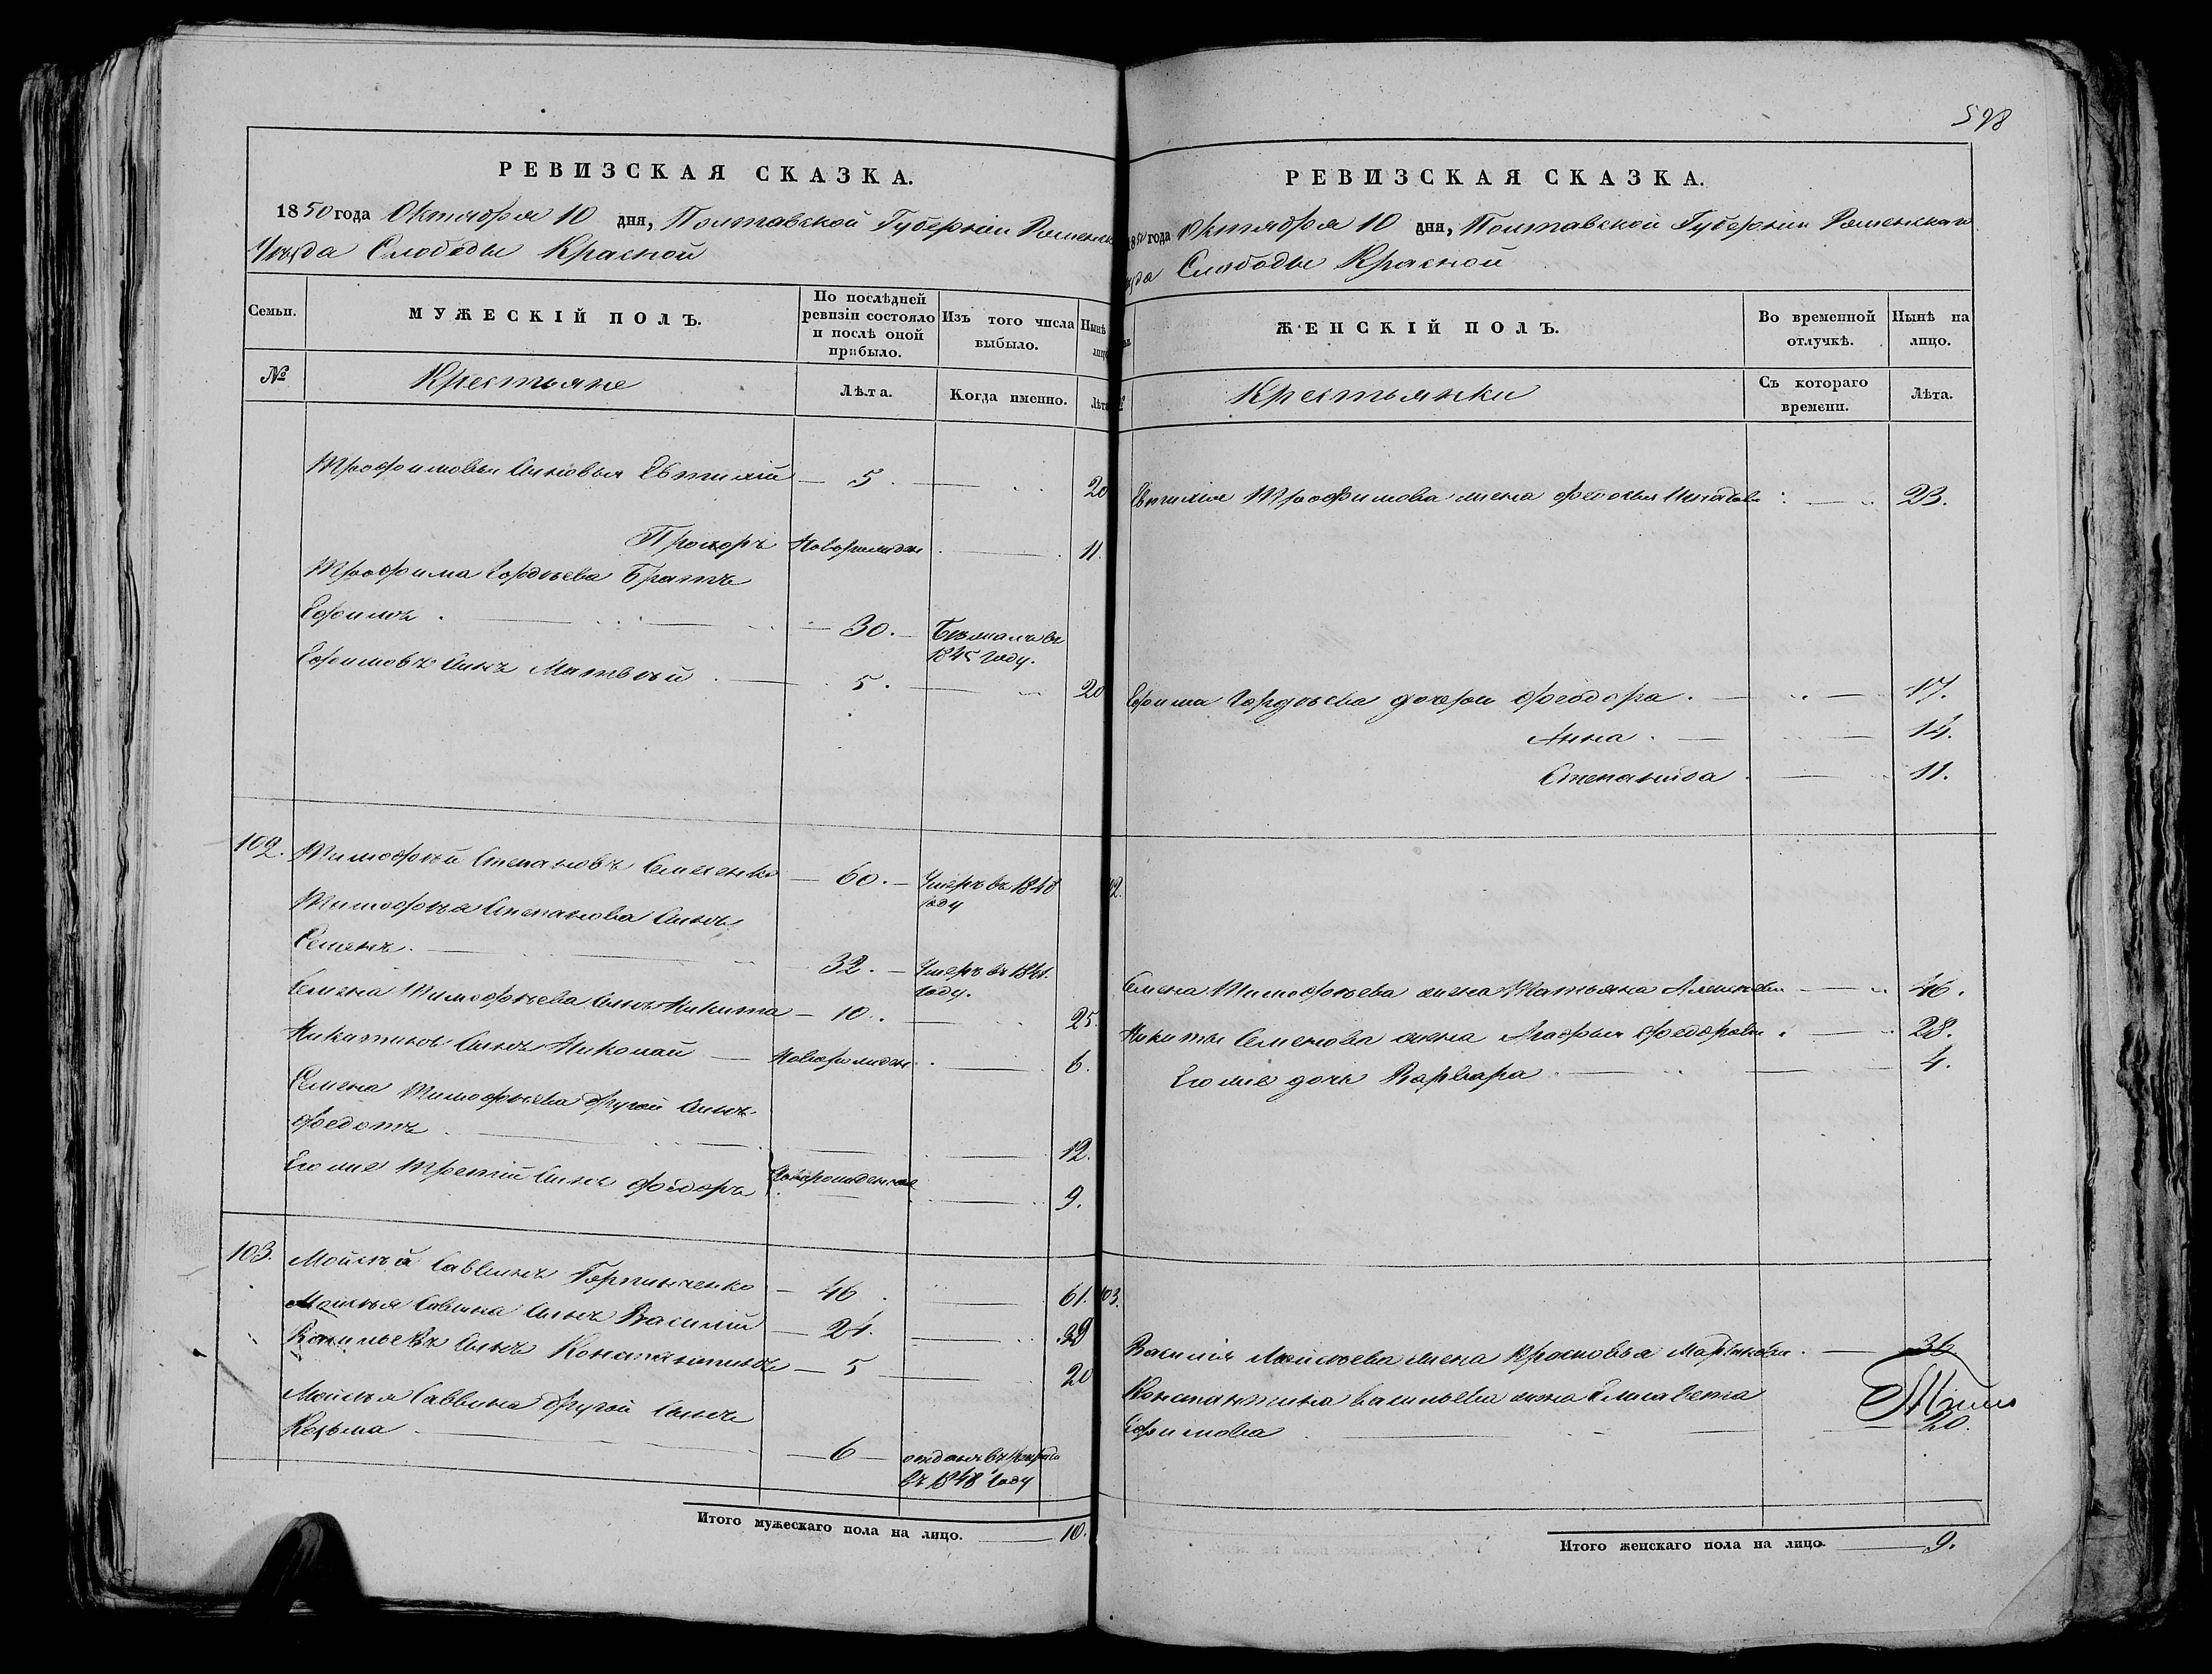 598
РЕВИЗСКАЯ СКАЗКА.
1850 года Октября 10 дня, Полтавской Губерніи Роменск
Уѣзда Слободы Красной
Семьи.
МУЖЕСКІЙ ПОЛЪ.
По послѣдней ревизіи состояло и послѣ оной прибыло.
Изъ того числа выбыло.
Нынѣ лицо
№
Крестьяне
Лѣта.
Когда именно.
Лѣта
Трофимовы сыновья Евтихій — 5. — 20
Прохоръ Новорожден — 11.
Трофима Гордѣева братъ
Ефимъ — 30. — Бѣжалъ въ
1845 году.
Ефимовъ сынъ Матвѣй — 5. — 20
102. Тимофѣй Степановъ — 60. — Умеръ въ 1848
году
Тимофѣя Степанова сынъ
Семенъ. — 32. — Умеръ въ 1841.
году.
Семена Тимофѣева сынъ Никита — 10. — 25.
Никитинъ сынъ Николай — Новорожден — 6.
Семена Тимофѣева другой сынъ
Федотъ — 12.
Его же третій сынъ Федоръ Новорожденные — 9.
103. Мойсѣй Саввинъ — 46. — 61.
Мойсѣя Савина сынъ Василій — 24. — 39
Васильевъ сынъ Константинъ — 5 — 20
Мойсѣя Саввина другой сынъ
Козьма — 6 — отданъ въ
въ 1848 году
Итого мужескаго пола на лицо. — 10.
РЕВИЗСКАЯ СКАЗКА.
1850 года Октября 10 дня, Полтавской Губерніи Роменскаго
ѣзда Слободы Красной
ЖЕНСКІЙ ПОЛЪ.
Во временной отлучкѣ.
Нынѣ на лицо.
Крестьянки
Съ котораго времени.
Лѣта.
Евтихія Трофимова жена — 23.
Ефима Гордѣева дочери Феодора. — 17.
Анна. — 14.
Степанида. — 11.
02.
Семена Тимофѣева жена Татьяна — 46.
Никиты Семенова жена Агафья Федорова — 28.
Его же дочь Варвара. — 4.
103.
Василія Мойсѣева жена — 36
Константина Васильева жена Елисавета
Ефимова — 20.
Итого женскаго пола на лицо. — 9.